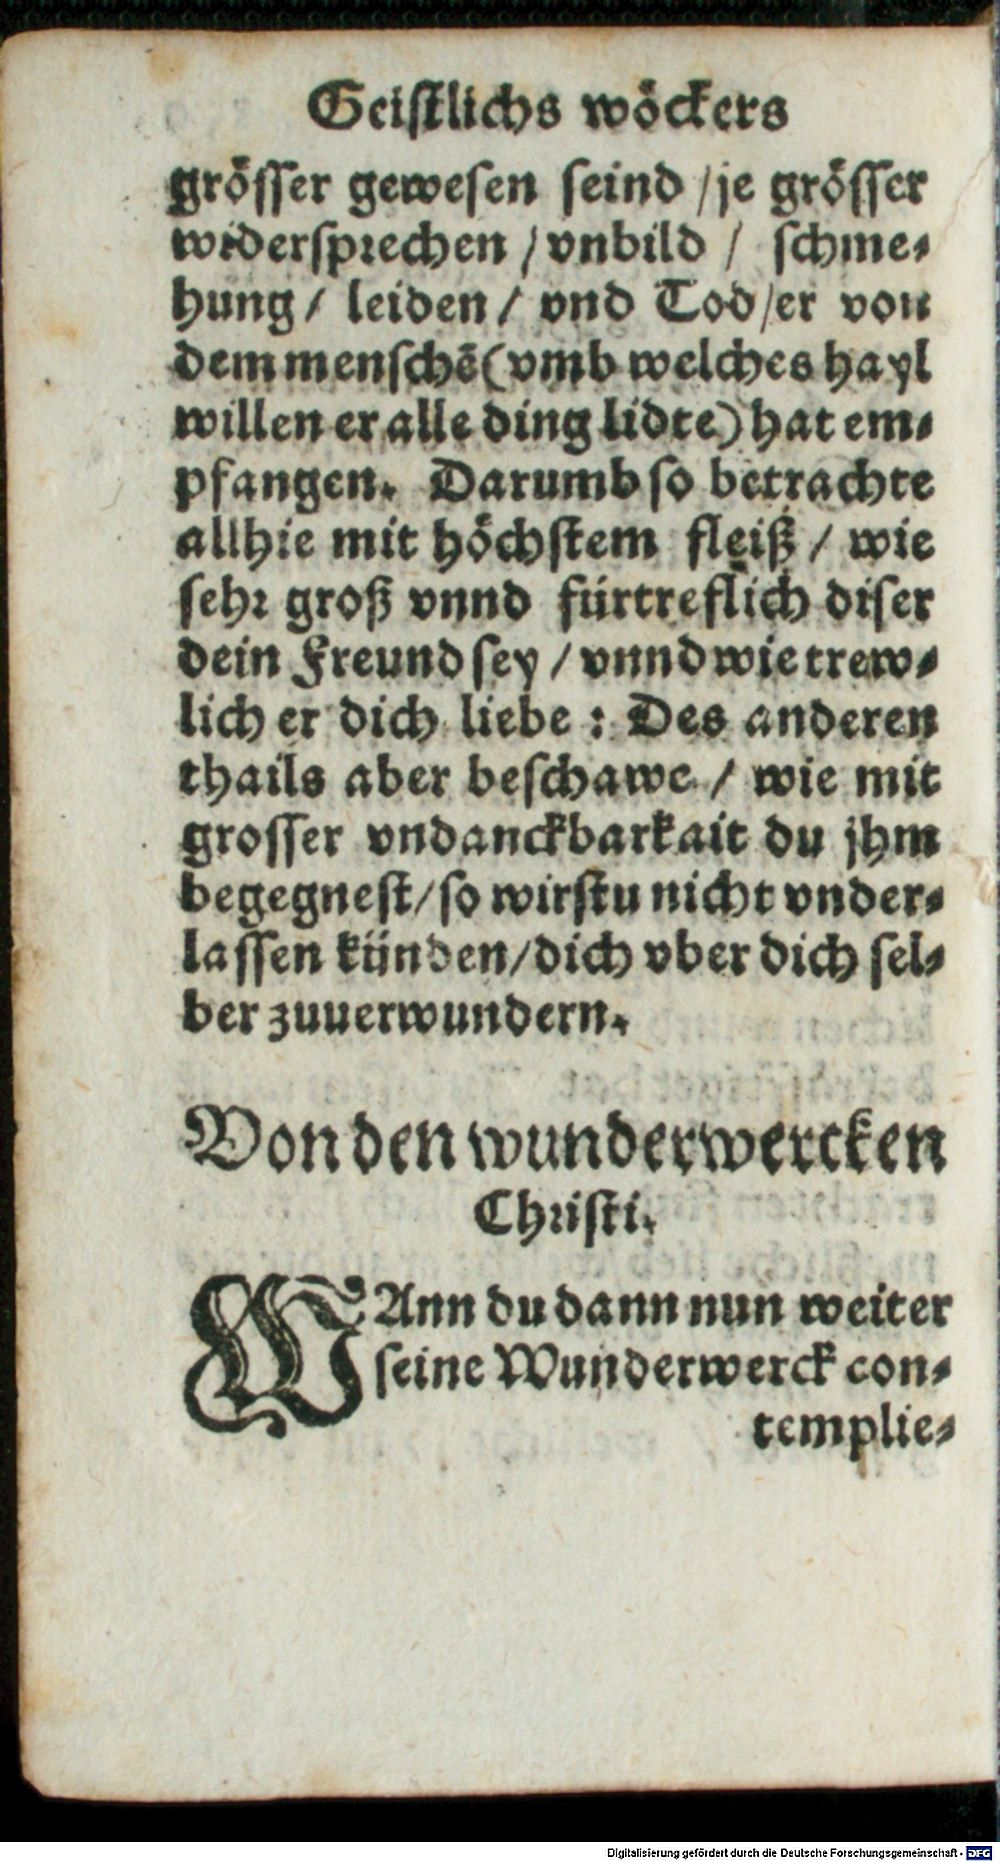 Geistlichs wöckers
grösser gewesen seind / je grösser
widersprechen / vnbild / schme-
hung / leiden / vnd Tod / er von
dem menschē (vmb welches hayl
willen er alle ding lidte) hat em-
pfangen. Darumb so betrachte
allhie mit höchstem fleiß / wie
sehr groß vnnd fürtreflich diser
dein Freund sey / vnnd wie trew-
lich er dich liebe : Des anderen
thails aber beschawe / wie mit
grosser vndanckbarkait du jhm
begegnest / so wirstu nicht vnder-
lassen künden / dich vber dich sel-
ber zuuerwundern.
Von den wunderwercken
Christi.
WAnn du dann nun weiter
seine Wunderwerck con-
templie-
Digitalisierung gefördert durch die Deutsche Forschungsgemeinschaft - DFG